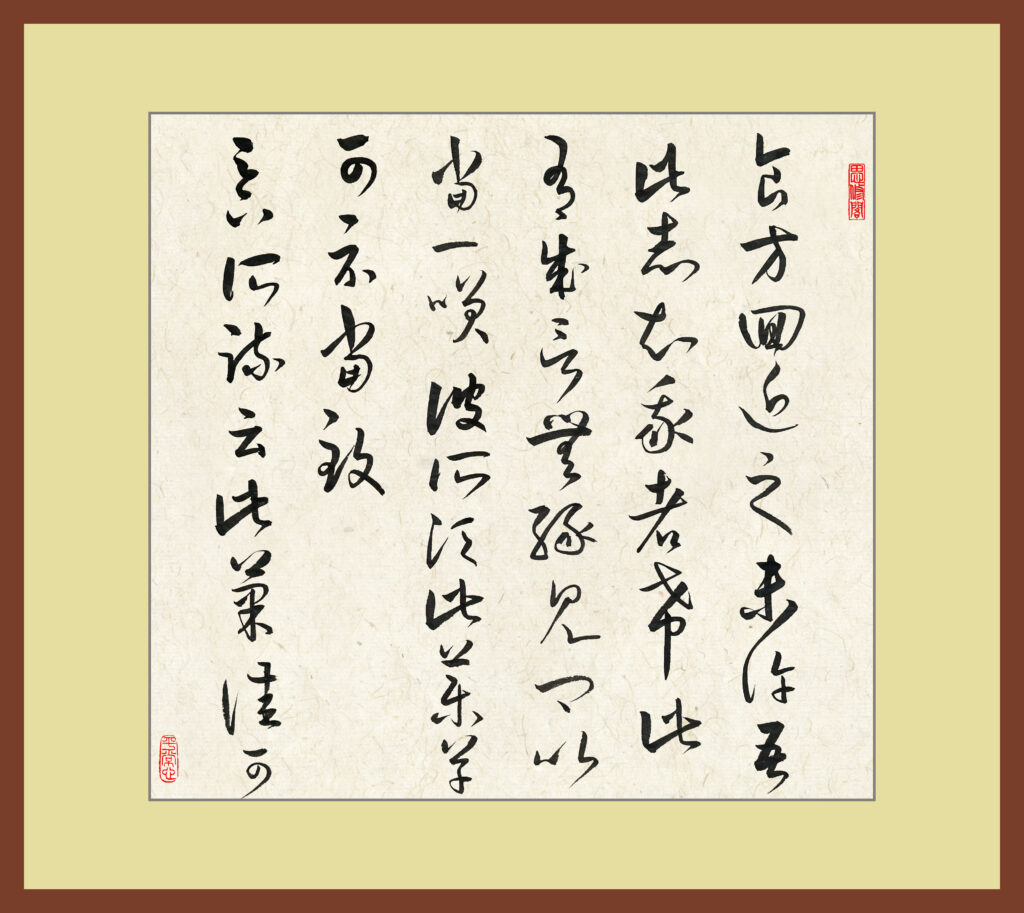 思修閣
食方回近之未許吾
此志知我者希此
有成言無緣見卿以
當一咲彼所須此藥草
可示當致
足下所疏云此菓佳可
平常心